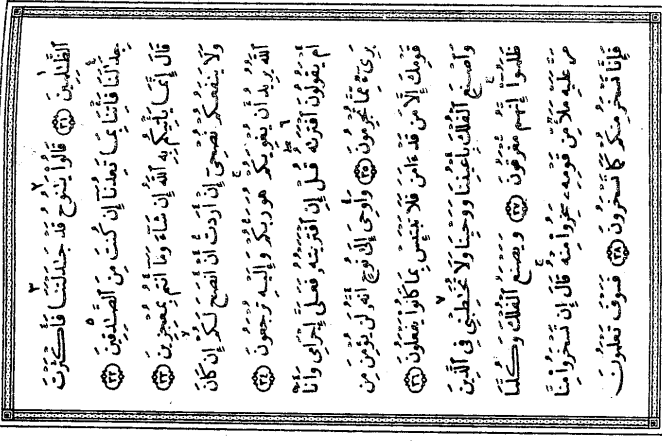 ٱلظَّـٰلِمِينَ ٣١ قَالُوا۟ يَـٰنُوحُ قَدْ جَـٰدَلْتَنَا فَأَكْثَرْتَ
جِدَٰلَنَا فَأْتِنَا بِمَا تَعِدُنَآ إِن كُنتَ مِنَ ٱلصَّـٰدِقِينَ ٣٢
قَالَ إِنَّمَا يَأْتِيكُم بِهِ ٱللَّهُ إِن شَآءَ وَمَآ أَنتُم بِمُعْجِزِينَ ٣٣
وَلَا يَنفَعُكُمْ نُصْحِىٓ إِنْ أَرَدتُّ أَنْ أَنصَحَ لَكُمْ إِن كَانَ
ٱللَّهُ يُرِيدُ أَن يُغْوِيَكُمْ هُوَ رَبُّكُمْ وَإِلَيْهِ تُرْجَعُونَ ٣٤
أَمْ يَقُولُونَ ٱفْتَرَىٰهُ قُلْ إِنِ ٱفْتَرَيْتُهُۥ فَعَلَىَّ إِجْرَامِى وَأَنَا۠
بَرِىٓءٌ مِّمَّا تُجْرِمُونَ ٣٥ وَأُوحِىَ إِلَىٰ نُوحٍ أَنَّهُۥ لَن يُؤْمِنَ مِن
قَوْمِكَ إِلَّا مَن قَدْ ءَامَنَ فَلَا تَبْتَئِسْ بِمَا كَانُوا۟ يَفْعَلُونَ ٣٦
وَٱصْنَعِ ٱلْفُلْكَ بِأَعْيُنِنَا وَوَحْيِنَا وَلَا تُخَـٰطِبْنِى فِى ٱلَّذِينَ
ظَلَمُوٓا۟ إِنَّهُم مُّغْرَقُونَ ٣٧ وَيَصْنَعُ ٱلْفُلْكَ وَكُلَّمَا
مَرَّ عَلَيْهِ مَلَأٌ مِّن قَوْمِهِۦ سَخِرُوا۟ مِنْهُ قَالَ إِن تَسْخَرُوا۟ مِنَّا
فَإِنَّا نَسْخَرُ مِنكُمْ كَمَا تَسْخَرُونَ ٣٨ فَسَوْفَ تَعْلَمُونَ